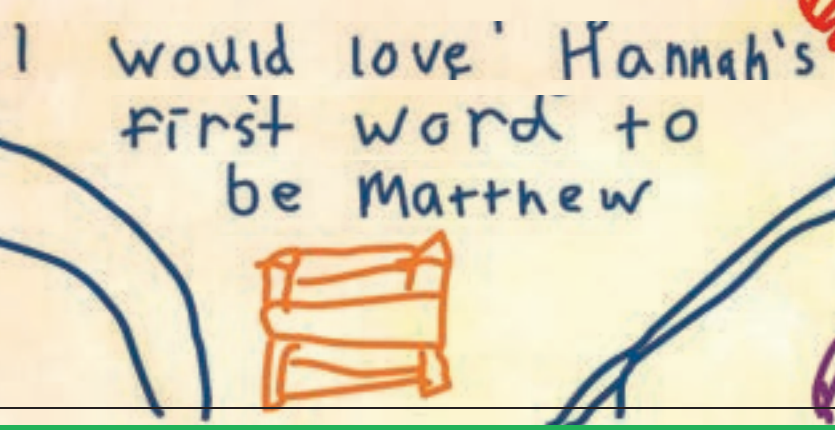 I would love Hannah's
first word to
be Matthew